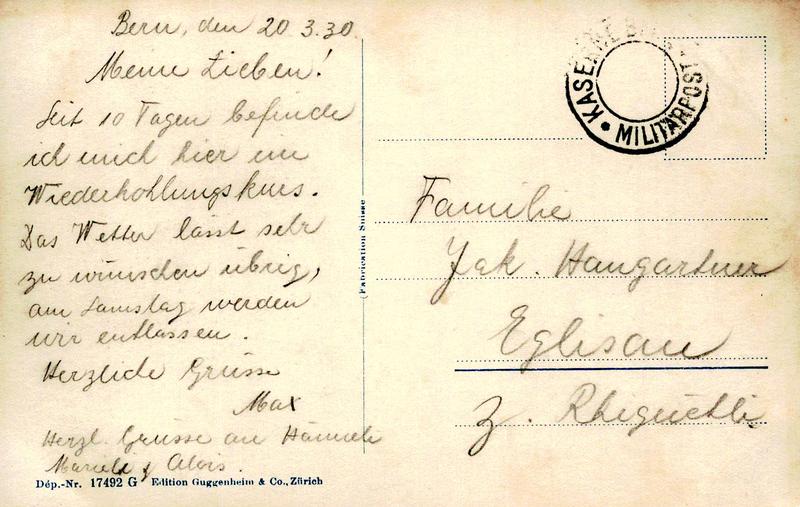 Bern, den 20.3.30
Meine Lieben!
Seit 10 Tagen befinde
ich mich hier im
Wiederhohlungskurs.
Das Wetter lässt sehr
zu wünschen übrig,
am Samstag werden
wir entlassen.
Herzliche Grüsse
Max
Herzl. Grüsse an Hänneli
Marieli & Alois.
Dép.-Nr. 17492 G Edition Guggenheim & Co., Zürich
Fabrication Suisse
KASERNE BERN
• MILITÄRPOST
Familie
Jak. Hangartner
Eglisau
z.